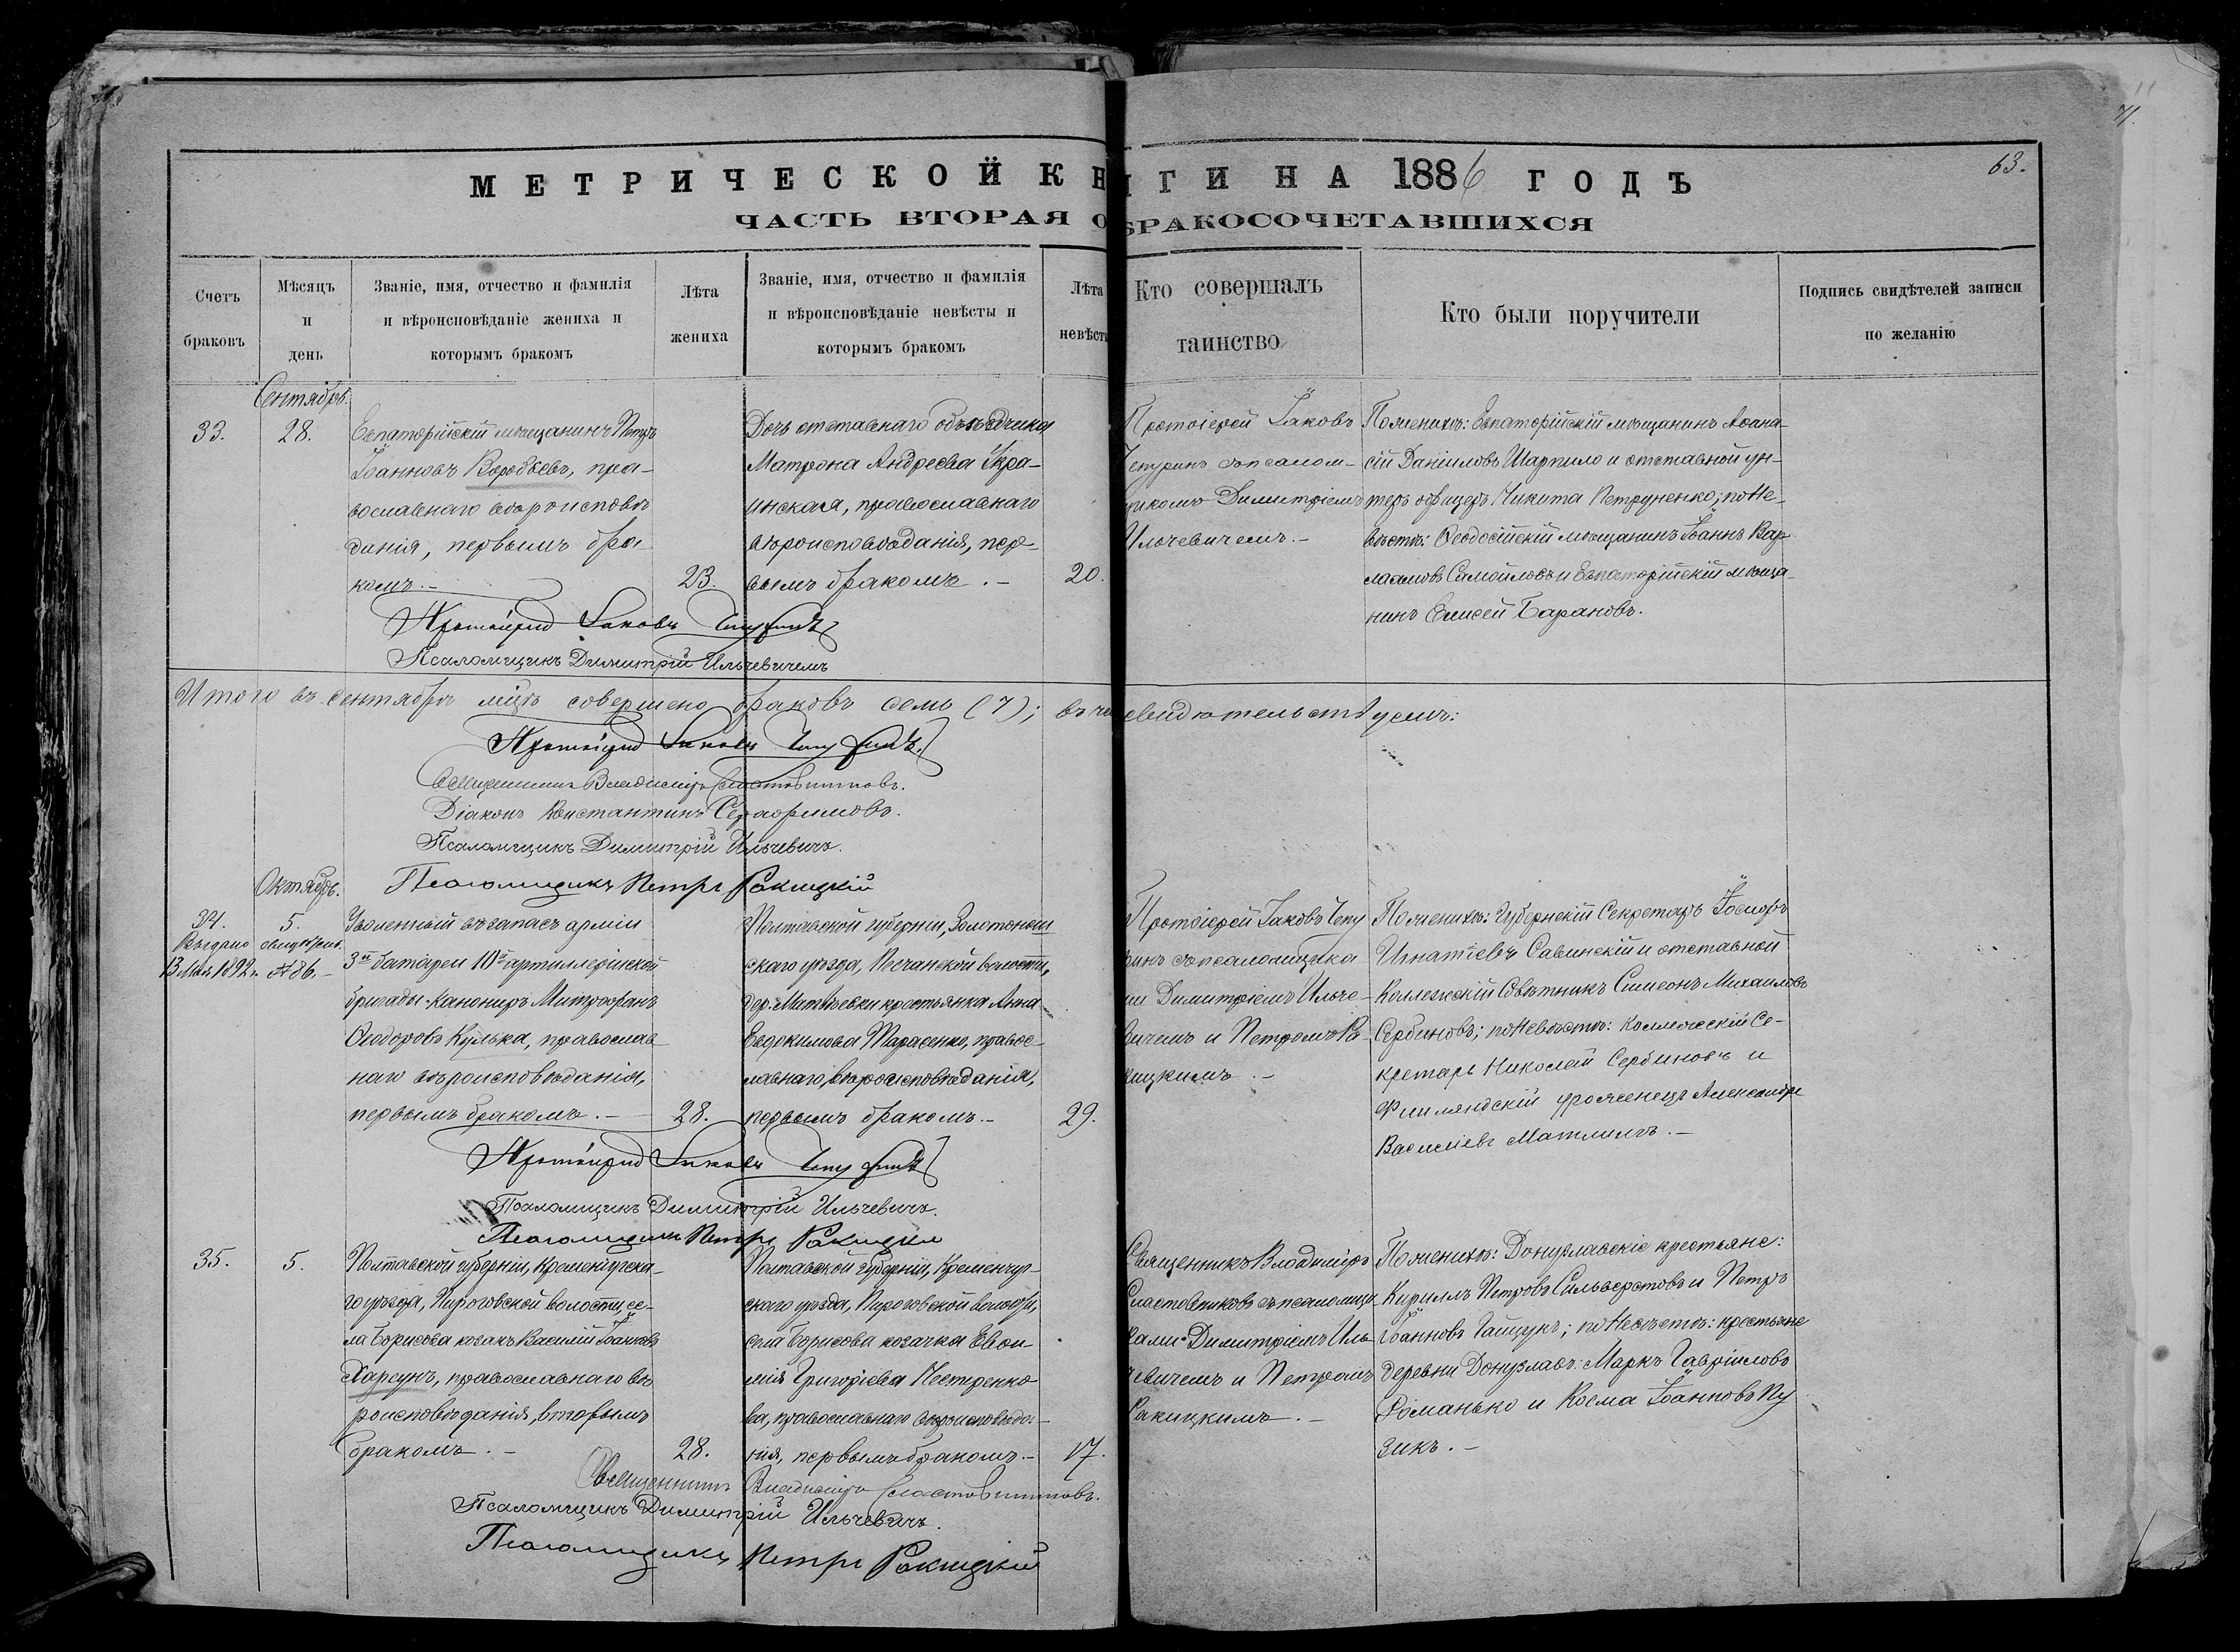 71.
63.
МЕТРИЧЕСКОЙ КНИГИ НА 1886 ГОДЪ
ЧАСТЬ ВТОРАЯ О БРАКОСОЧЕТАВШИХСЯ
Счетъ
браковъ
Мѣсяцъ
и
день
Званіе, имя, отчество и фамилія
и вѣроисповѣданіе жениха и
которымъ бракомъ
Лѣта
жениха
Званіе, имя, отчество и фамилія
и вѣроисповѣданіе невѣсты и
которымъ бракомъ
Лѣта
невѣсты
Кто совершалъ
таинство
Кто были поручители
Подпись свидѣтелей записи
по желанію
Сентябрь.
33.
28.
Евпаторійскій мѣщанинъ Петръ
Іоанновъ Воробьевъ, пра-
вославнаго вѣроисповѣ
данія, первымъ бра-
комъ.-
23.
Дочь отставнаго объѣздчика
Матрона Андреева Укра-
инская, православнаго
вѣроисповѣданія, пер-
вымъ бракомъ.-
20.
Протоіерей Іаковъ
Чепуринъ съ псалом-
щикомъ Димитріемъ
Ильчевичемъ.-
По женихѣ: Евпаторійскій мѣщанинъ Аѳана-
сій Даніиловъ Шарпило и отставной ун-
теръ офицеръ Никита Петруненко; по не-
вѣстѣ: Ѳеодосійскій мѣщанинъ Іоаннъ Вар-
лаамовъ Самойловъ и Евпаторійскій мѣща-
нинъ Елисей Барановъ.
Протоіерей Іаковъ Чепуринъ
Псаломщикъ Димитрій Ильчевичемъ
Итого въ сентябрѣ мцѣ совершено браковъ семь (7); въ чемъ свидѣтельствуемъ:
Протоіерей Іаковъ Чепуринъ.
Священникъ Владиміръ Сластовниковъ.
Діаконъ Константинъ Серафимовъ.
Псаломщикъ Димитрій Ильчевичъ.
Псаломщикъ Петръ Ракицкій
Октябрь.
34.
Выдано
13 1892 г.
5.
свидѣт.
№ 86.-
Уволенный въ запасъ арміи
3й батареи 10й артиллерійской
бригады канониръ Митрофанъ
Ѳеодоровъ Кулька, православ
наго вѣроисповѣданія,
первымъ бракомъ.-
28.
Полтавской губерніи, Золотонош
скаго уѣзда, Песчанской волости,
дер. Матвѣевки крестьянка Анна
Евдокимова Тарасенко, правос-
лавнаго вѣроисповѣданія,
первымъ бракомъ.-
29.
Протоіерей Іаковъ Чепу
ринъ съ псаломщика
ми Димитріемъ Ильче-
вичемъ и Петромъ Ра-
кицкимъ.-
По женихѣ: Губернскій Секретарь Іосифъ
Игнатіевъ Савинскій и отставной
Коллежскій Совѣтникъ Симеонъ Михаиловъ
Сербиновъ; по невѣстѣ: Коллежскій Се-
кретарь Николай Сербиновъ и
Финляндскій уроженецъ Александръ
Василіевъ Матлинъ.-
Протоіерей Іаковъ Чепуринъ
Псаломщикъ Димитрій Ильчевичъ.
Псаломщикъ Петръ Ракицкій
35.
5.
Полтавской губерніи, Кременчугска-
го уѣзда, Пироговской волости, се-
ла Борисова козакъ Василій Іоанновъ
Харсунъ, православнаго вѣ
роисповѣданія, вторымъ
бракомъ.-
28.
Полтавской губерніи, Кременчуг-
скаго уѣзда, Пироговской волости,
села Борисова козачка Евѳи-
мія Григоріева Нестеренко
ва, православнаго вѣроисповѣда-
нія, первымъ бракомъ.-
17.
Священникъ Владиміръ
Сластовниковъ съ псаломщи
ками Димитріемъ Иль-
чевичемъ и Петромъ
Ракицкимъ.-
По женихѣ: Донузлавскіе крестьяне:
Кириллъ Петровъ Сильверстовъ и Петръ
Іоанновъ Гащукъ; по невѣстѣ: крестьяне
деревни Донузлавъ: Маркъ Гавріиловъ
Романько и Косма Іоанновъ Пу
зикъ.-
Священникъ Владиміръ Сластовниковъ.
Псаломщикъ Димитрій Ильчевичъ.
Псаломщикъ Петръ Ракицкій